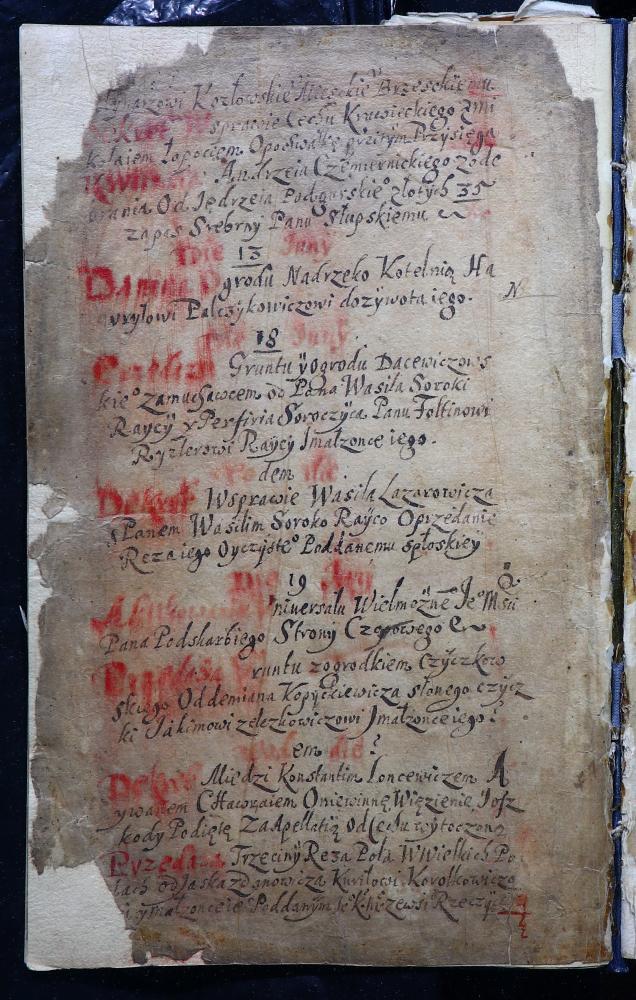 Kozłowskie° Brzeskiemu
Dekret Wsprawie Cechu Krawieckiego zmi
kołaiem Łopociem Opochwałkę przitym Przysięga
Kwit Andrzeia Czemiernickiego zode
brania Od Jędrzeia Podgurskie° złotych 35
zapas Srebrny Panu Słupskiemu
Die 13 Juny
Danina Ogrodu Nadrzeko Kotelnią Ha
vryłowi Palczykowiczowi dozywota iego.
N
Die 18 Juny
Przedaza Gruntu y ogrodu Dacewiczows
kie° zamuchawcem od Pana Wasila Soroki
Raycy y Perfiria Soroczyca Panu Foltinowi
Ryzlerowi Raycy Imałzonce iego.
Eodem die
Dekret Wsprawie Wasila Lazarowicza
s Panem Wasilim Soroko Rayco Oprzedanie
Reza iego Oyczyste° Poddanemu spłoskiey
Die 19 Juny
niuersału Wielmożne° Je° Mści
Pana Podskarbiego Strony Czopowego
Przedaza Gruntu zogrodkiem Czyczkow
skiego Oddemiana Kopyckiewicza słonego czycz
ki Jakimowi zelezkowiczowi Imałzonce iego.
Eodem die
Dekret Miedzi Konstantim Ioncewiczem A
ywanem Oniewinnę Więzienie, Iosz
kody Podięte Za Apellatią od Cechu wytoczoną
Przedaza Trzeciny Reza Pola W Wielkich Po
lach od Jaska zdanowicza Kuriłowi Korolkowiczo
i ymałzonce ie° Poddanym